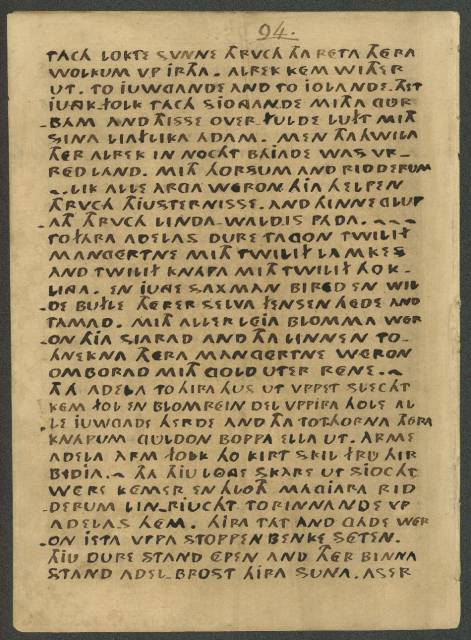 94.
TACH LOKTE SVNNE THRVCH THA RETA THERA
WOLKUM VP IRTHA. ALREK KEM WITHER
UT. TO IUWGANDE AND TO IOLANDE. THET
IUNGK.FOLK TACH SIONGANDE MITHA GUR-
BAM AND THISSE OVER.FULDE LUFT MITH
SINA LIAFLIKA ADAM. MEN THAHWILA
THER ALREK IN NOCHT BAIADE WAS VR-
RED LAND. MITH HORSUM AND RIDDERUM
LIK ALLE ARGA WERON HIA HELPEN
THRVCH THIUSTERNISSE. AND HINNE GLUP
ATH THRVCH LINDA-WALDIS PADA.
TO FARA ADELAS DURE TAGON TWILIF
MANGERTNE MITH TWILIF LAMKES
AND TWILIF KNAPA MITH TWILIF HOK-
LINGA. EN IUNGE SAXMAN BIRED EN WIL
DE BUFLE THER ER SELVA FENSEN HEDE AND
TAMAD. MITH ALLERLEIA BLOMMA WER
ON HIA SIARAD AND THA LINNEN TO-
HNEKNA THERA MANGERTNE WERON
OMBORAD MITH GOLD UTER RENE.
THA ADELA TO HIRA HUS UT UPPET SLECHT
KEM FOL EN BLOMREIN DEL VPPIRA HOLE AL
LE IUWGADE HERDE AND THA TOTHORNA THERA
KNAPUM GULDON BOPPA ELLA UT. ARME
ADELA ARM FOLK HO KIRT SKIL FRU HIR
BIDIA. THA THIU LONGE SKARE UT SIOCHT
WERE KEMER EN HLOTH MAGIARA RID
DERUM LIN-RIUCHT TO RINNANDE VP
ADELAS HEM. HIRA TAT AND GADE WER
ON IETA VPPA STOPPEN BENKE SETEN.
THIU DURE STAND EPEN AND THER BINNA
STAND ADEL-BROST HIRA SUNA. ASER